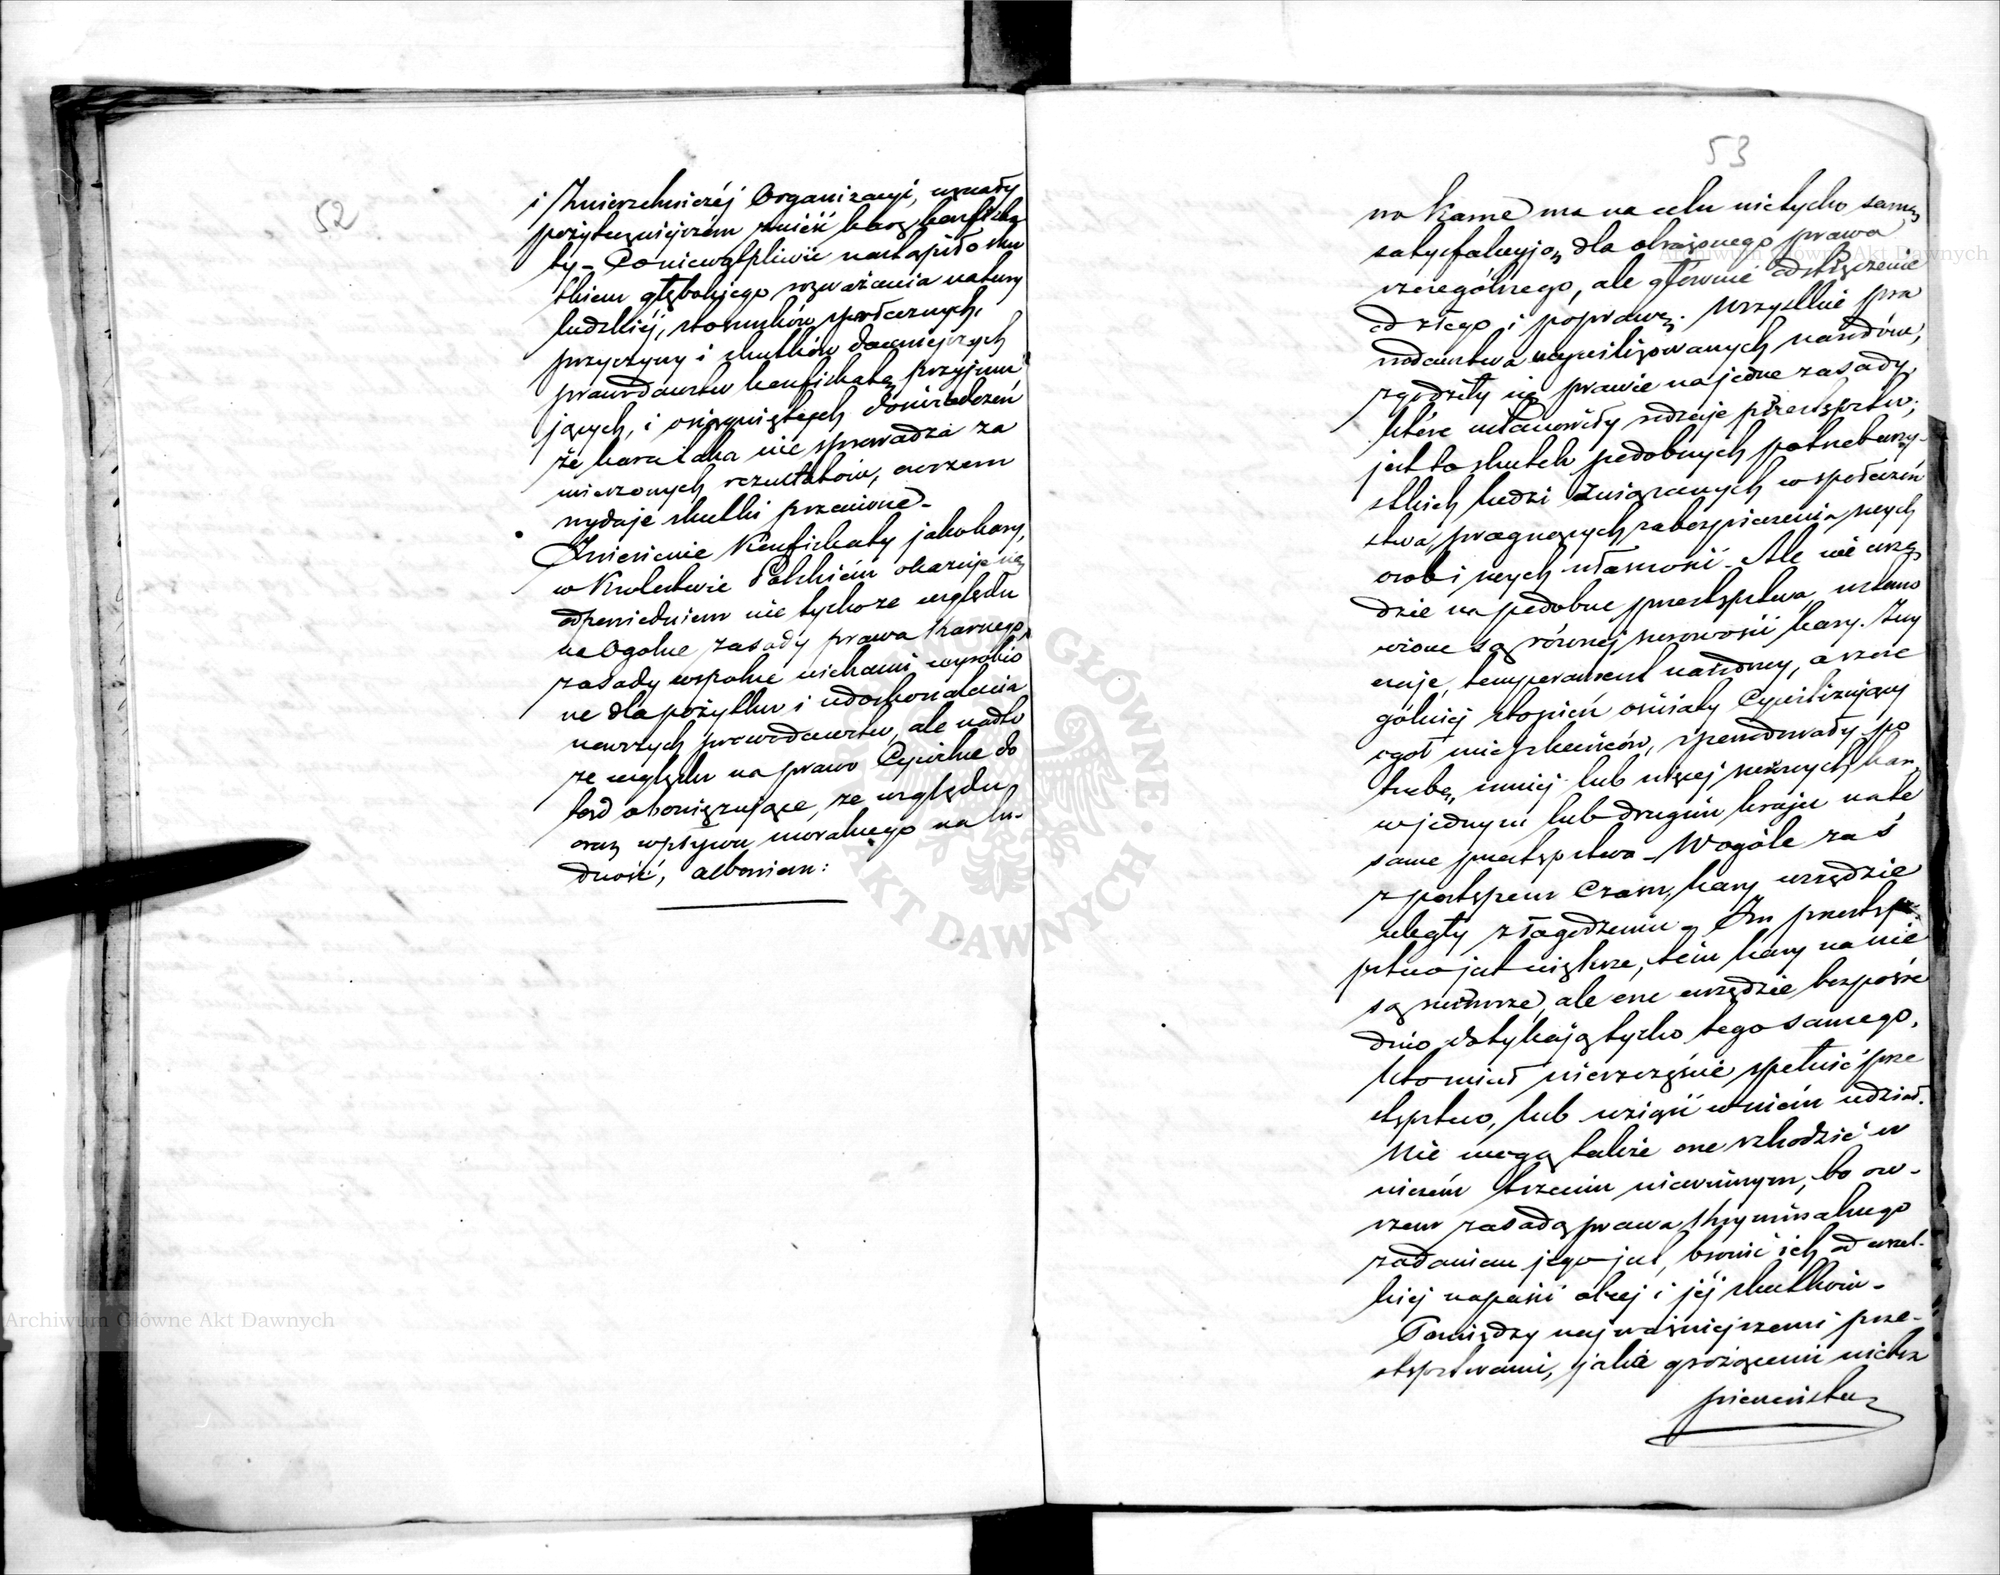 52
i Zwierzchniczéj Organizacyi, uznały
pożyteczniejszém znieść karę konfiska
ty - Co niewątpliwie nastąpiło sku
tkiem głębokiego rozważania natury
ludzkiéj, stosunków społecznych,
przyczyny i skutków dawniejszych
prawodawstw konfiskatę przyjmu
jących, i osiągniętych doświadczeń
że kara taka nie sprowadza za
mierzonych rezultatów, owszem
wydaje skutki przeciwne -
Zniesienie Konfiskaty jako kary,
w Królestwie Polskiém okazuje się
odpowiedniem nie tylko ze względu
na Ogólne zasady prawa karnego,
zasady wspólne wiekami wyrobio
ne dla pożytku i udoskonalenia
nowszych prawodawstw, ale nadto
ze względu na prawo Cywilne do
tąd obowiązujące, ze względu
oraz wpływu moralnego na lu-
dność, albowiem:
53
na Karne ma na celu nietylko samą
satysfakcyją dla obrażonego prawa
szczególnego, ale głównie odstręczenie
od złego i poprawę. Wszystkie pra
wodawstwa ucywilizowanych narodów,
zgodziły się prawie na jedne zasady,
które ustanowiły rodzaje przestępstw;
jest to skutek podobnych potrzeb wszy-
stkich ludzi związanych w społeczeń
stwa, pragnących zabezpieczenia swych
osób i swych własności - Ale nie wszę
dzie na podobne przestępstwa ustano
wione są równéj surowości kary. Zwy
czaje, temperament narodowy, a szcze
gólniéj stopień oświaty Cywilizującéj
ogół mieszkańców, spowodowały po
trzebę, mniéj lub więcéj surowych kar,
w jednym lub drugim kraju na te
same przestępstwa - W ogóle zaś
z postępem Czasu, kary wszędzie
uległy złagodzeniu - Im przestę
pstwo jest większe, tém kary na nie
są surowsze, ale one wszędzie bezpośre
dnio dotykają tylko tego samego,
kto miał nieszczęście spełnić prze
stępstwo, lub wziąść w niém udział.
Nie mogą także one szkodzić w
niczém trzecim niewinnym, bo ow-
szem zasadą prawa kryminalnego
zadaniem jego jest, bronić ich od wszel-
kiéj napaści obcéj i jéj skutków -
Pomiędzy najważniejszemi prze-
stępstwami, jako grożącemi niebez
pieczeństwem
Archiwum Główne Akt Dawnych
Archiwum Główne Akt Dawnych
ARCHIWUM GŁÓWNE AKT DAWNYCH